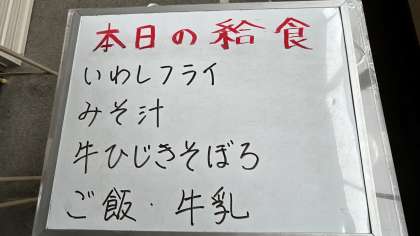 本日の給食
いわしフライ
みそ汁
牛ひじきそぼろ
ご飯・牛乳